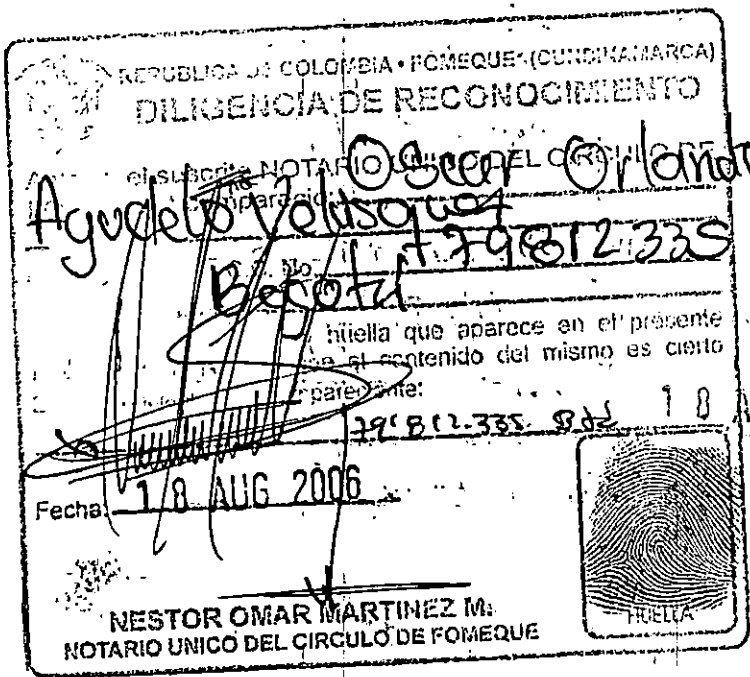 REPUBLICA DE COLOMBIA • FOMEQUE (CUNDINAMARCA)
DILIGENCIA DE RECONOCIMIENTO
el suscrito NOTARIO UNICO DEL CIRCULO DE
Oscar Orlando
compareció
Agudelo Velasquez
No. 79812335
Bogotá
huella que aparece en el presente
el contenido del mismo es cierto
pareciente:
79'812.335 Btá 1 8
Fecha: 18 AUG 2006
NESTOR OMAR MARTINEZ M.
NOTARIO UNICO DEL CIRCULO DE FOMEQUE
HUELLA